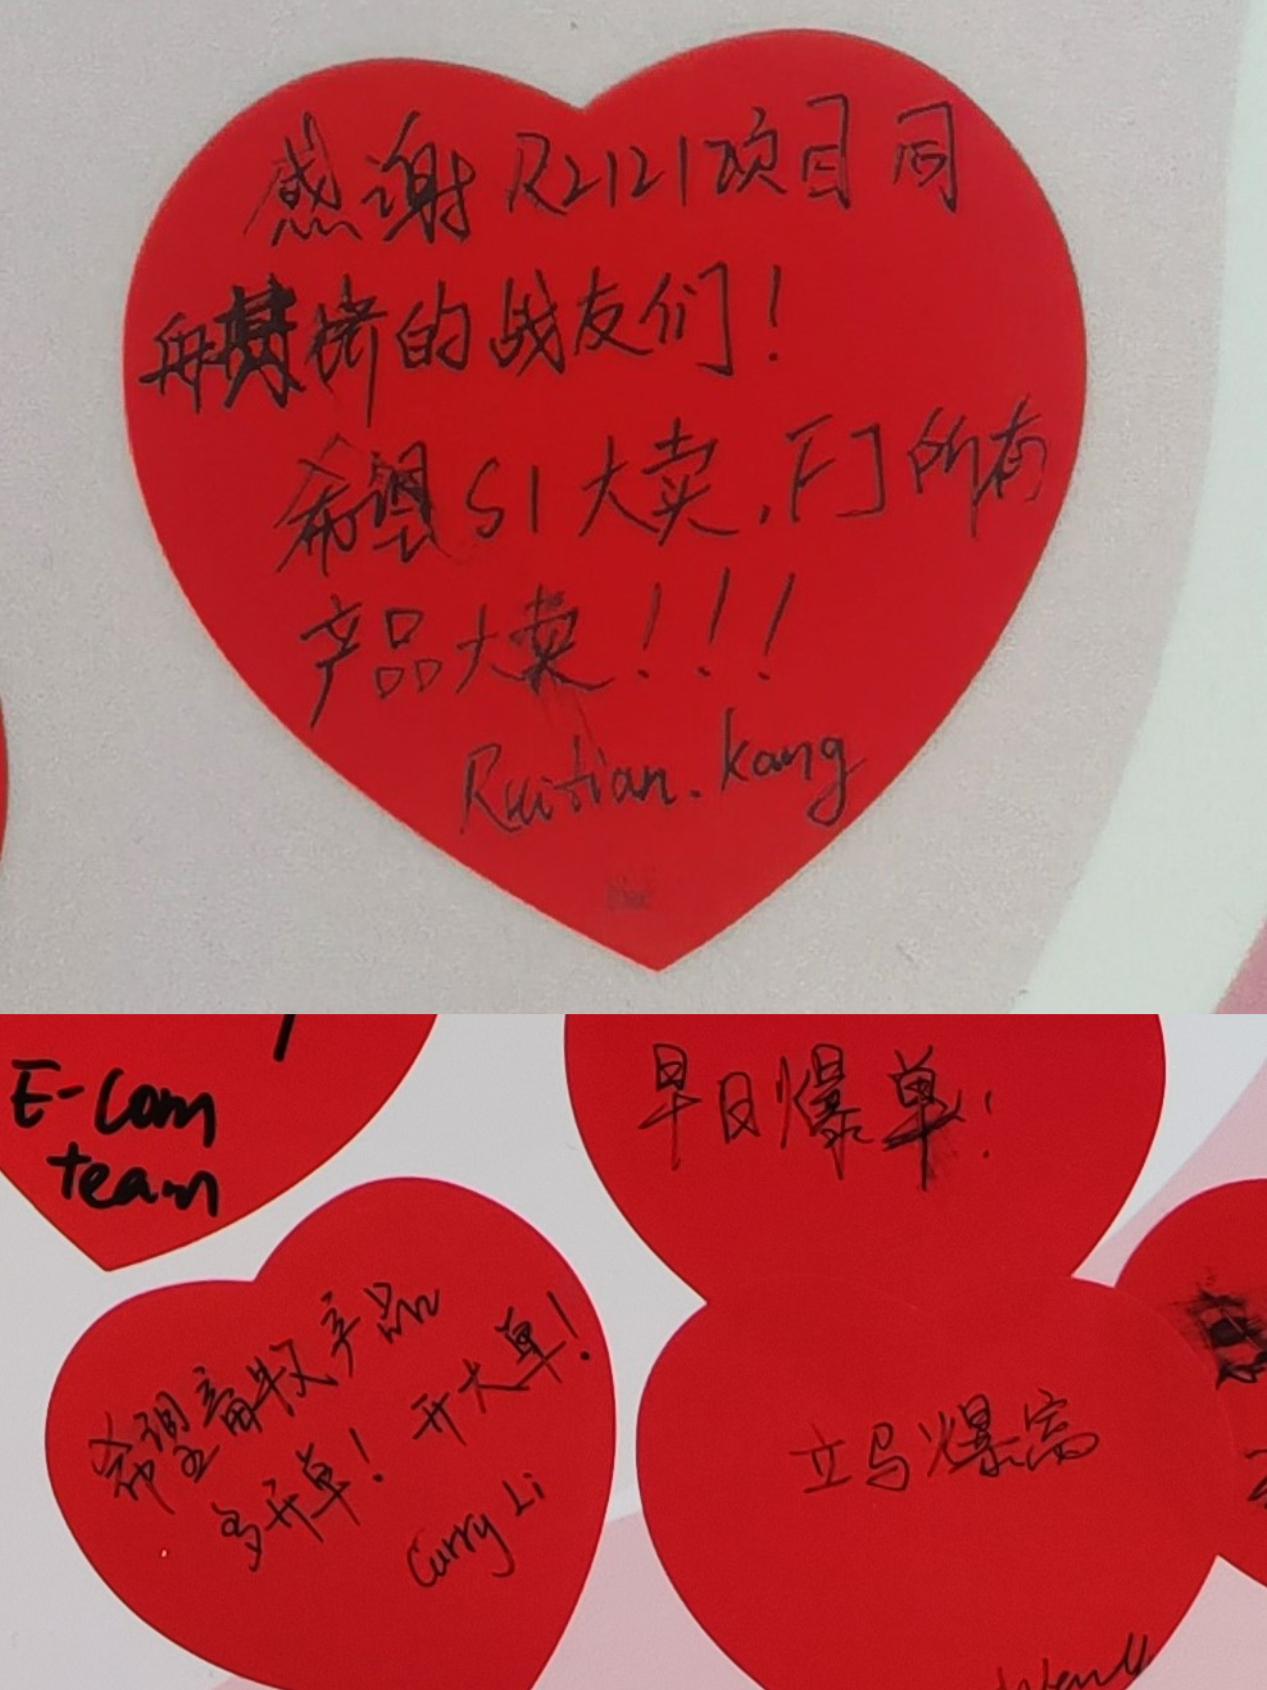 感谢R2121项目同
舟共搓的战友们！
希望S1大卖，FJ所有
产品大卖！！！
Ruitian.kang
E-Com
team
早日爆单！
希望音散产品
多开单！开大单！
Curry Li
立马爆富